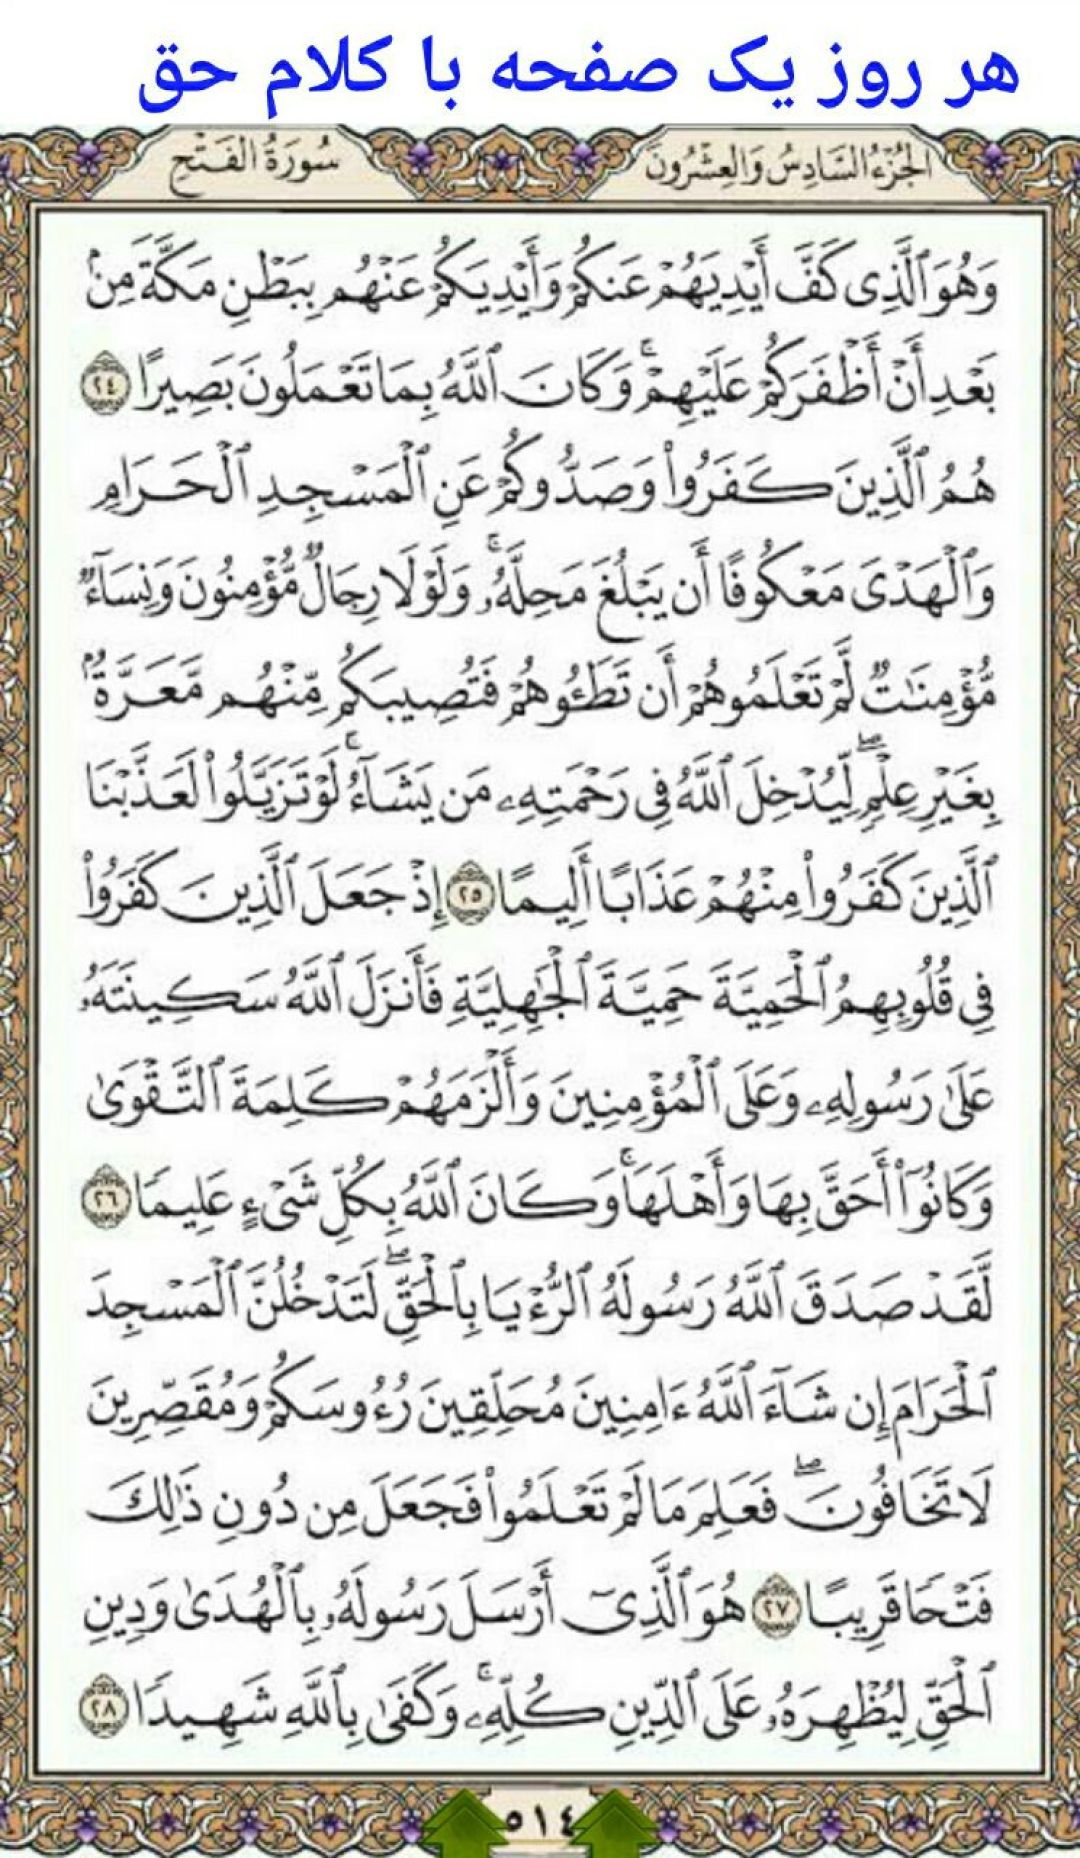 هر روز یک صفحه با کلام حق
الجُزْءُ السَّادِسُ وَالعِشْرُونَ
سُورَةُ الفَتْحِ
وَهُوَ ٱلَّذِى كَفَّ أَيْدِيَهُمْ عَنكُمْ وَأَيْدِيَكُمْ عَنْهُم بِبَطْنِ مَكَّةَ مِنۢ
بَعْدِ أَنْ أَظْفَرَكُمْ عَلَيْهِمْ ۚ وَكَانَ ٱللَّهُ بِمَا تَعْمَلُونَ بَصِيرًا ٢٤
هُمُ ٱلَّذِينَ كَفَرُوا۟ وَصَدُّوكُمْ عَنِ ٱلْمَسْجِدِ ٱلْحَرَامِ
وَٱلْهَدْىَ مَعْكُوفًا أَن يَبْلُغَ مَحِلَّهُۥ ۚ وَلَوْلَا رِجَالٌ مُّؤْمِنُونَ وَنِسَآءٌ
مُّؤْمِنَٰتٌ لَّمْ تَعْلَمُوهُمْ أَن تَطَـُٔوهُمْ فَتُصِيبَكُم مِّنْهُم مَّعَرَّةٌۢ
بِغَيْرِ عِلْمٍ ۖ لِّيُدْخِلَ ٱللَّهُ فِى رَحْمَتِهِۦ مَن يَشَآءُ ۚ لَوْ تَزَيَّلُوا۟ لَعَذَّبْنَا
ٱلَّذِينَ كَفَرُوا۟ مِنْهُمْ عَذَابًا أَلِيمًا ٢٥ إِذْ جَعَلَ ٱلَّذِينَ كَفَرُوا۟
فِى قُلُوبِهِمُ ٱلْحَمِيَّةَ حَمِيَّةَ ٱلْجَٰهِلِيَّةِ فَأَنزَلَ ٱللَّهُ سَكِينَتَهُۥ
عَلَىٰ رَسُولِهِۦ وَعَلَى ٱلْمُؤْمِنِينَ وَأَلْزَمَهُمْ كَلِمَةَ ٱلتَّقْوَىٰ
وَكَانُوٓا۟ أَحَقَّ بِهَا وَأَهْلَهَا ۚ وَكَانَ ٱللَّهُ بِكُلِّ شَىْءٍ عَلِيمًا ٢٦
لَّقَدْ صَدَقَ ٱللَّهُ رَسُولَهُ ٱلرُّءْيَا بِٱلْحَقِّ ۖ لَتَدْخُلُنَّ ٱلْمَسْجِدَ
ٱلْحَرَامَ إِن شَآءَ ٱللَّهُ ءَامِنِينَ مُحَلِّقِينَ رُءُوسَكُمْ وَمُقَصِّرِينَ
لَا تَخَافُونَ ۖ فَعَلِمَ مَا لَمْ تَعْلَمُوا۟ فَجَعَلَ مِن دُونِ ذَٰلِكَ
فَتْحًا قَرِيبًا ٢٧ هُوَ ٱلَّذِىٓ أَرْسَلَ رَسُولَهُۥ بِٱلْهُدَىٰ وَدِينِ
ٱلْحَقِّ لِيُظْهِرَهُۥ عَلَى ٱلدِّينِ كُلِّهِۦ ۚ وَكَفَىٰ بِٱللَّهِ شَهِيدًا ٢٨
٥١٤